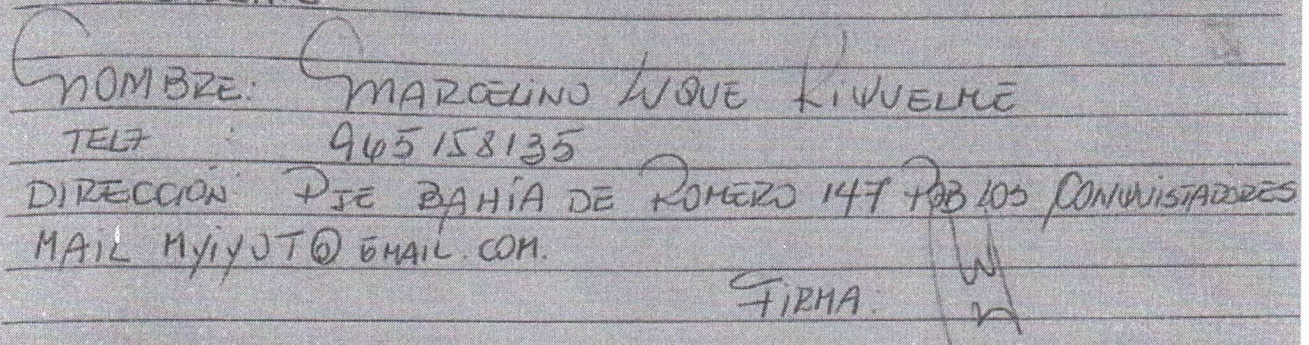 NOMBRE: MARCELINO LUQUE RIQUELME
TELF : 965158135
DIRECCIÓN PJE BAHÍA DE ROMERO 147 POB LOS CONQUISTADORES
MAIL MYIYUT@GMAIL.COM.
FIRMA: